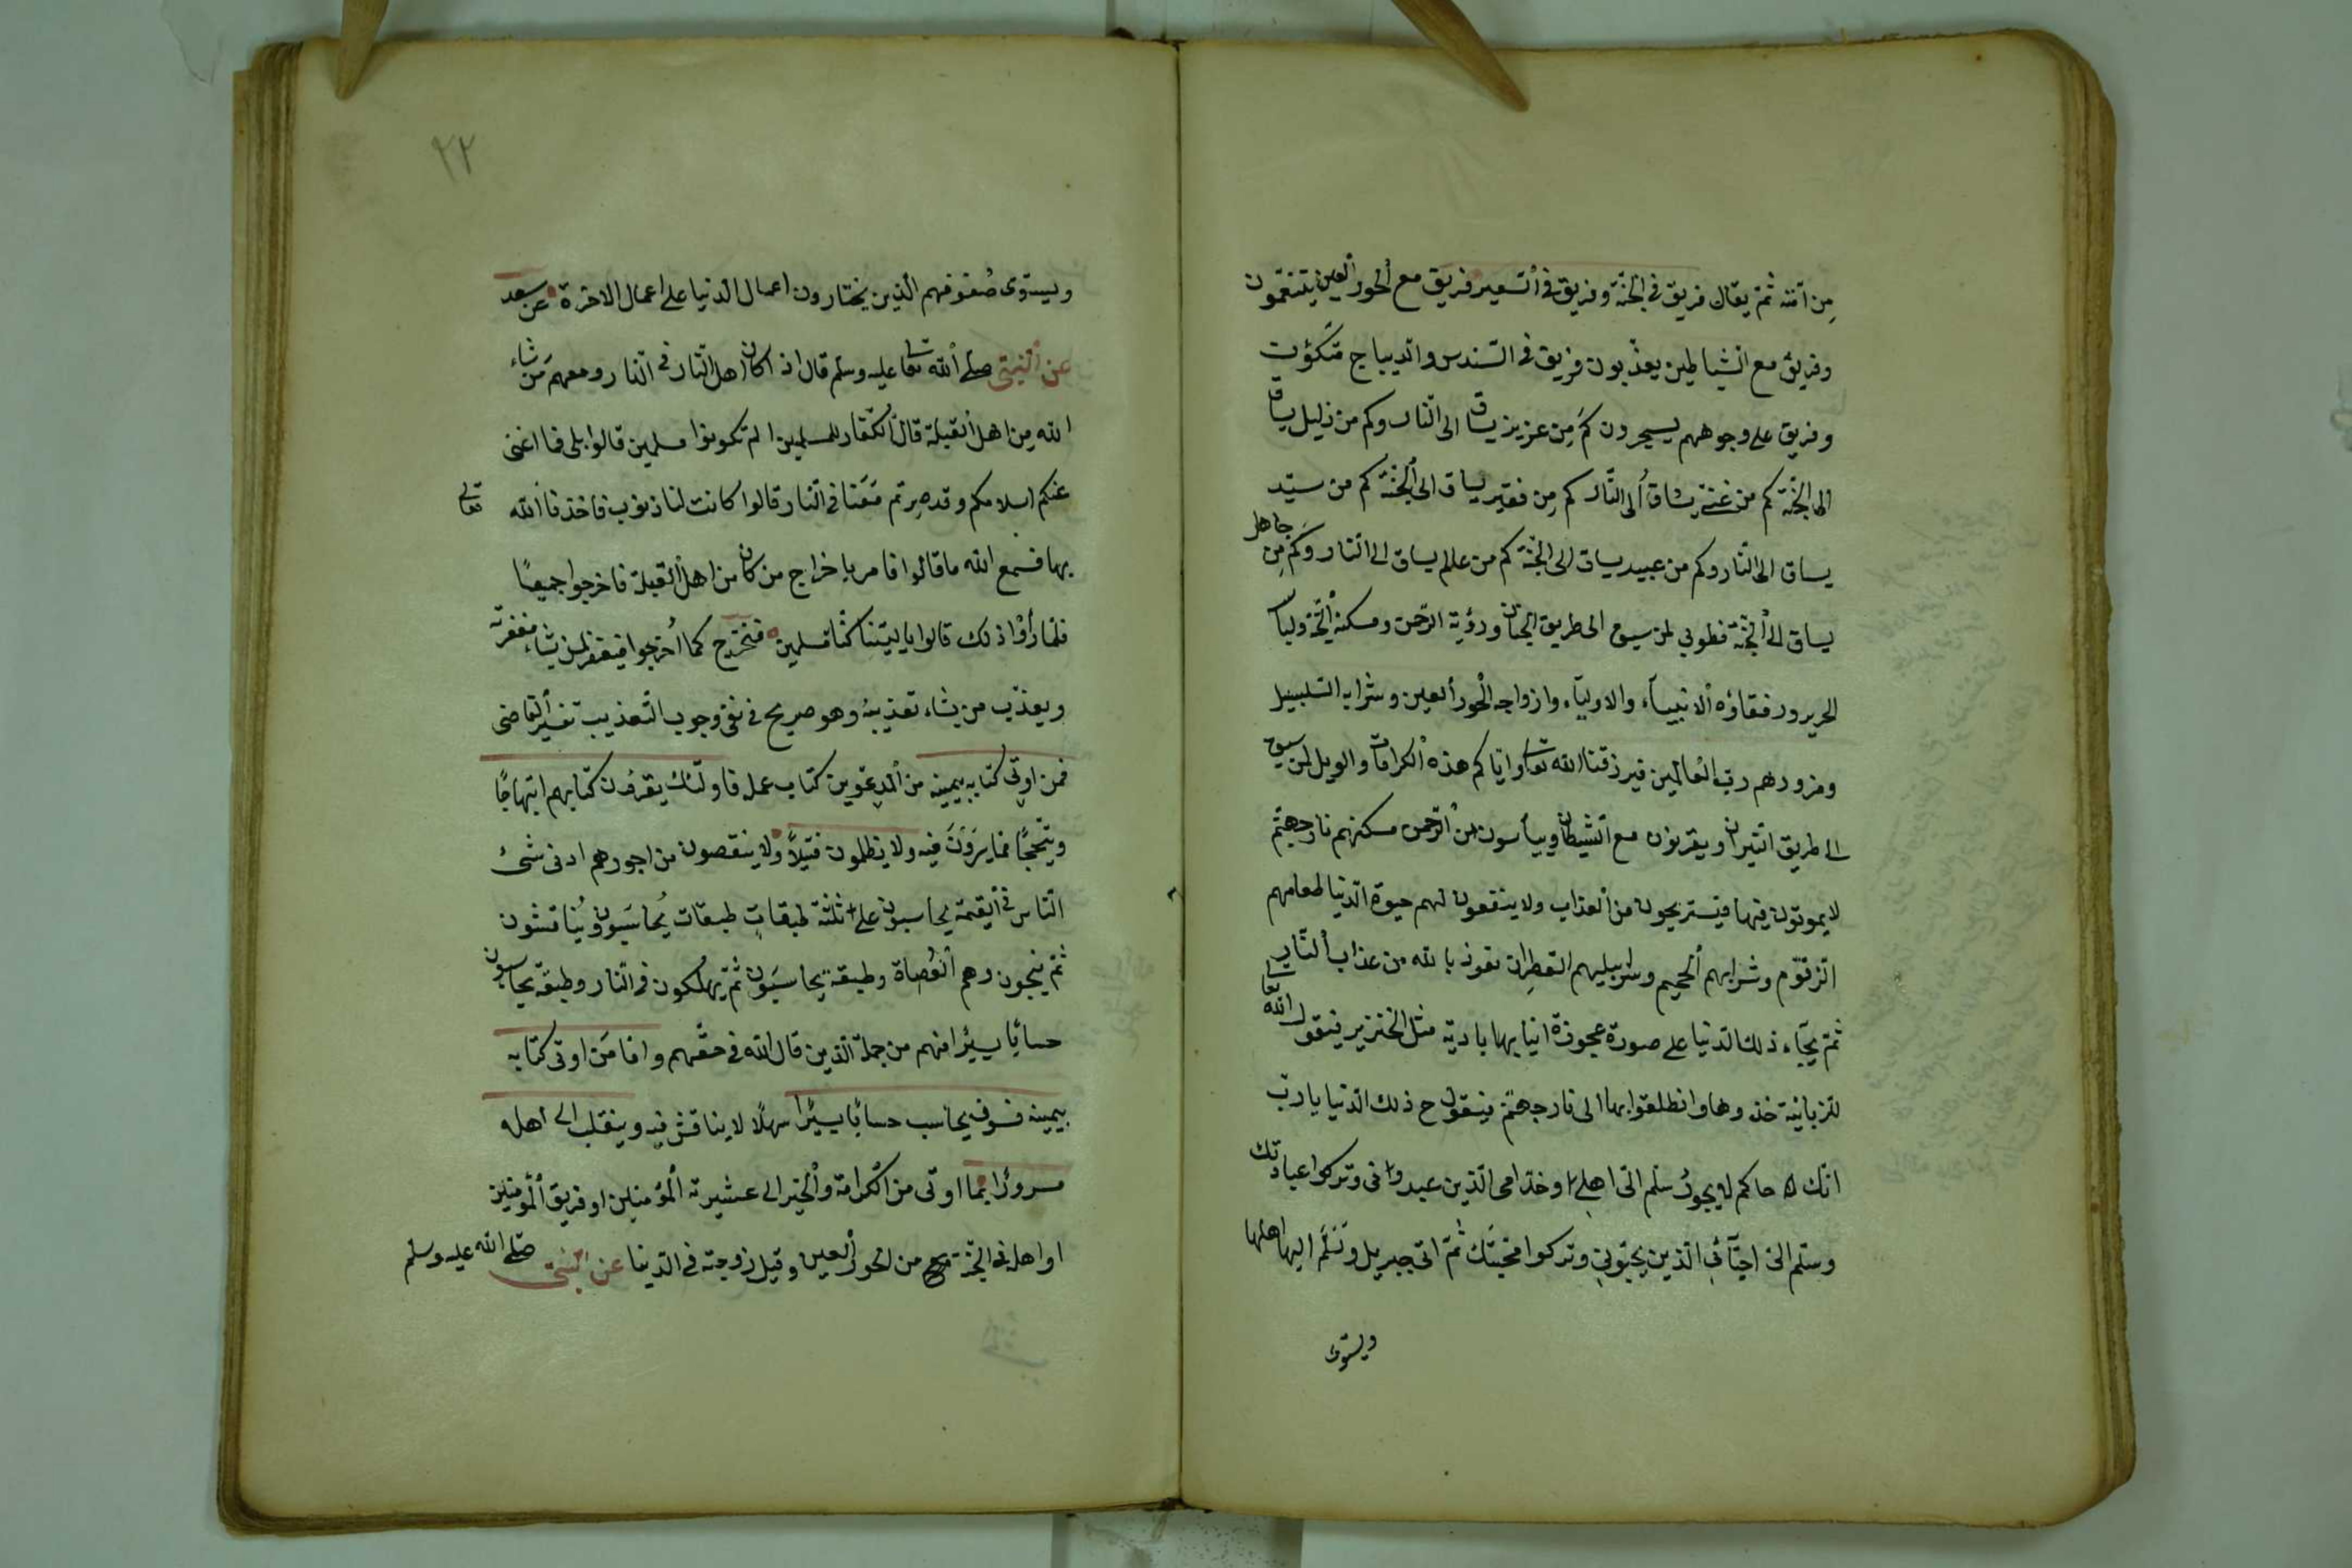 مِن امّته ثمّ يقال فريق فى الجنّة وفريق فى السّعير فريق مع الحور العين يتنعّمون
وفريق مع الشّياطين يعذّبون فريق فى السّندس والديباج متّكؤن
وفريق على وجوههم يسجرون كم مِن عزيز يساق الى النّار وكم من ذليل يساق
الى الجنّة كم من غنىّ يساق الى النّار كم مِن فقير يساق الى الجنّة كم من سيّد
يساق الى النّار وكم من عبيد يساق الى الجنّة كم من عالم يساق الى النّار وكم مِن جاهل
يساق الى الجنّة فطوبى لمن سيق الى طريق الجنان ورؤية الرّحمن ومسكنه الجنّة ولباسه
الحرير ورفقاؤه الانبياء والاولياء وازواجه الحور العين وشرابه السّلسبيل
ومزورهم ربّ العالمين فيرزقنا الله تعالى وايّاكم هذه الكرامات والويل لمن سيق
الى طريق النّيران ويقرنون مع الشّيطان وييأسون من الرّحمن مسكنهم نار جهنّم
لا يموتون فيها فيستريحون من العذاب ولا ينفعون لهم حيوة الدّنيا طعامهم
الزّقّوم وشرابهم الحميم وسرابيلهم القطران نعوذ بالله من عذاب النّار
ثمّ يجآء ذلك الدّنيا على صورة عجوزة انيابها بادية مثل الخنزير فيقول الله تعالى
للزّبانية خذوها وانطلقوا بها الى نار جهنّم فيقول ح ذلك الدّنيا يا ربّ
انّك حاكم لا يجور سلّم الىّ اهلى وخدّامى الّذين عبدوا فى وتركوا عبادتك
وسلّم الىّ احبّآئى الّذين يحبّونى وتركوا محبّتك ثمّ اتى جبريل وتسلّم اليها اهلها
ويستوى
٢٢
ويستوى صُفوفهم الّذين يختارون اعمال الدّنيا على اعمال الاخرة عن سعد
عن النّبىّ صلّى الله تعالى عليه وسلّم قال اذا كان اهل النّار فى النّار ومعهم مَن شاء
الله مِن اهل القبلة قال الكفّار للمسلمين الم تكونوا مسلمين قالوا بلى فما اغنى
عنكم اسلامكم وقد صِرتم مَعَنا فى النّار قالوا كانت لنا ذنوب فاخذنا الله تعالى
بها فسمع الله ما قالوا فامر باخراج من كان من اهل القبلة فاخرجوا جميعًا
فلمّا رأوا ذلك قالوا يا ليتنا كنّا مسلمين فنخرج كما اُخرجوا فيغفر لمن يشاء مغفرته
ويعذّب من يشاء تعذيبه وهو صريح فى نفى وجوب التّعذيب تفسير القاضى
فمن اوتى كتابه بيمينه من المدعوّين كتاب عمله فاولئك يقرؤن كتابهم ابتهاجًا
وتبجّحًا مما يَرَوْنَ فيه ولا يظلمون فتيلًا ولا ينقصون من اجورهم ادنى شئ
النّاس فى القيمة يحاسبون على ثلثة طبقاتٍ طبقات يُحاسَبون ويُناقشون
ثمّ ينجون وهم العُصاة وطبقة يحاسَبون ثمّ يهلكون فى النّار وطبقة يحاسبون
حسابًا يسيرًا فهم من جملة الّذين قال الله فى حقّهم وامّا مَن اوتى كتابه
بيمينه فسوف يحاسب حسابًا يسيرًا سهلًا لا يناقش فيه وينقلب الى اهله
مسرورًا بما اوتى من الكرامة والخير الى عشيرته المؤمنين او فريق المؤمنين
او اهله فى الجنّة من الحور العين وقيل زوجته فى الدّنيا عن النّبىّ صلّى الله عليه وسلّم